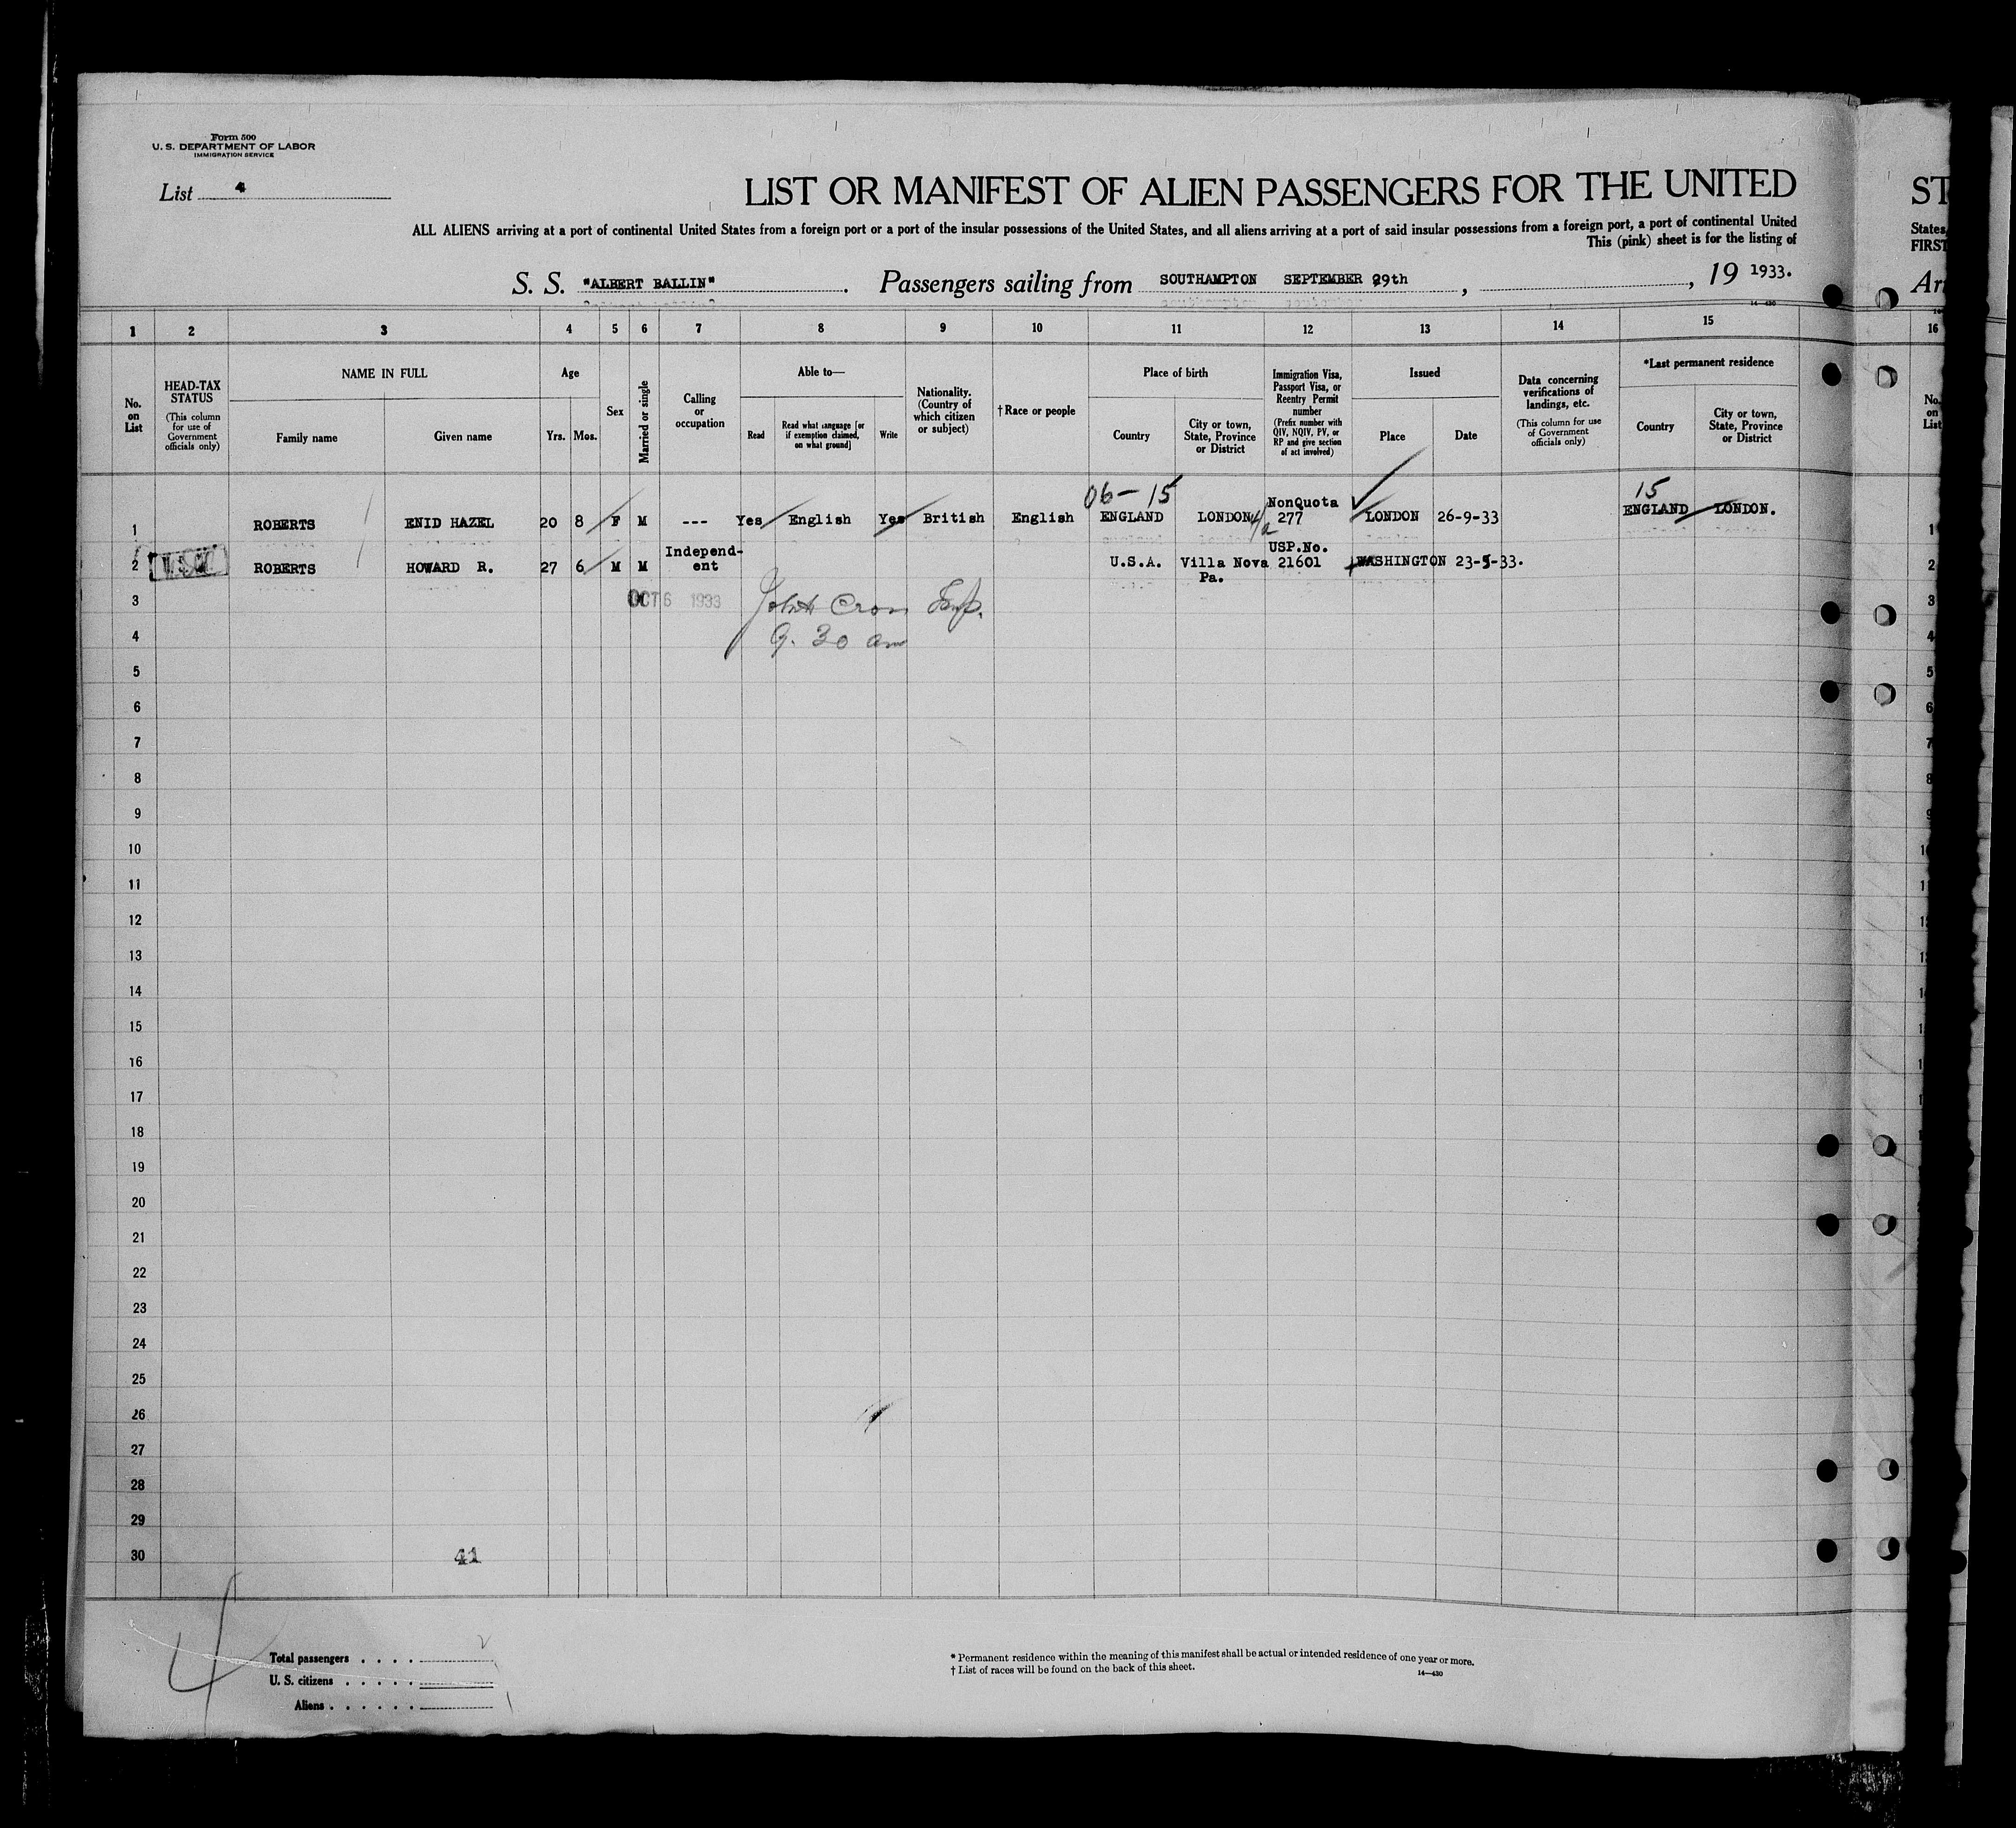 Form 500
U. S. DEPARTMENT OF LABOR
IMMIGRATION SERVICE
List 4
LIST OR MANIFEST OF ALIEN PASSENGERS FOR THE UNITED
ALL ALIENS arriving at a port of continental United States from a foreign port or a port of the insular possessions of the United States, and all aliens arriving at a port of said insular possessions from a foreign port, a port of continental United
This (pink) sheet is for the listing of
S. S. "ALBERT BALLIN". Passengers sailing from SOUTHAMPTON SEPTEMBER 29th, , 19 1933.
14—430
1 2 3 4 5 6 7 8 9 10 11 12 13 14 15
No. on List
HEAD-TAX STATUS
(This column for use of Government officials only)
NAME IN FULL
Family name
Given name
Age
Yrs.
Mos.
Sex
Married or single
Calling or occupation
Able to—
Read
Read what language [or if exemption claimed, on what ground]
Write
Nationality. (Country of which citizen or subject)
†Race or people
Place of birth
Country
City or town, State, Province or District
Immigration Visa, Passport Visa, or Reentry Permit number
(Prefix number with QIV, NQIV, PV, or RP and give section of act involved)
Issued
Place
Date
Data concerning verifications of landings, etc.
(This column for use of Government officials only)
*Last permanent residence
Country
City or town, State, Province or District
06-15
NonQuota
15
1 ROBERTS ENID HAZEL 20 8 F M --- Yes English Yes British English ENGLAND LONDON 277 LONDON 26-9-33 ENGLAND LONDON.
Independ-
USP.No.
2 ROBERTS HOWARD R. 27 6 M M ent U.S.A. Villa Nova 21601 WASHINGTON 23-5-33.
Pa.
3 OCT 6 1933
4 9.30 am
5
6
7
8
9
10
11
12
13
14
15
16
17
18
19
20
21
22
23
24
25
26
27
28
29
30
41
4
Total passengers . . . . 2
U. S. citizens . . . . .
Aliens . . . . . .
* Permanent residence within the meaning of this manifest shall be actual or intended residence of one year or more.
† List of races will be found on the back of this sheet.
14—430
ST
States
FIRST
Arr
16
No. on List
1
2
3
4
5
6
7
8
9